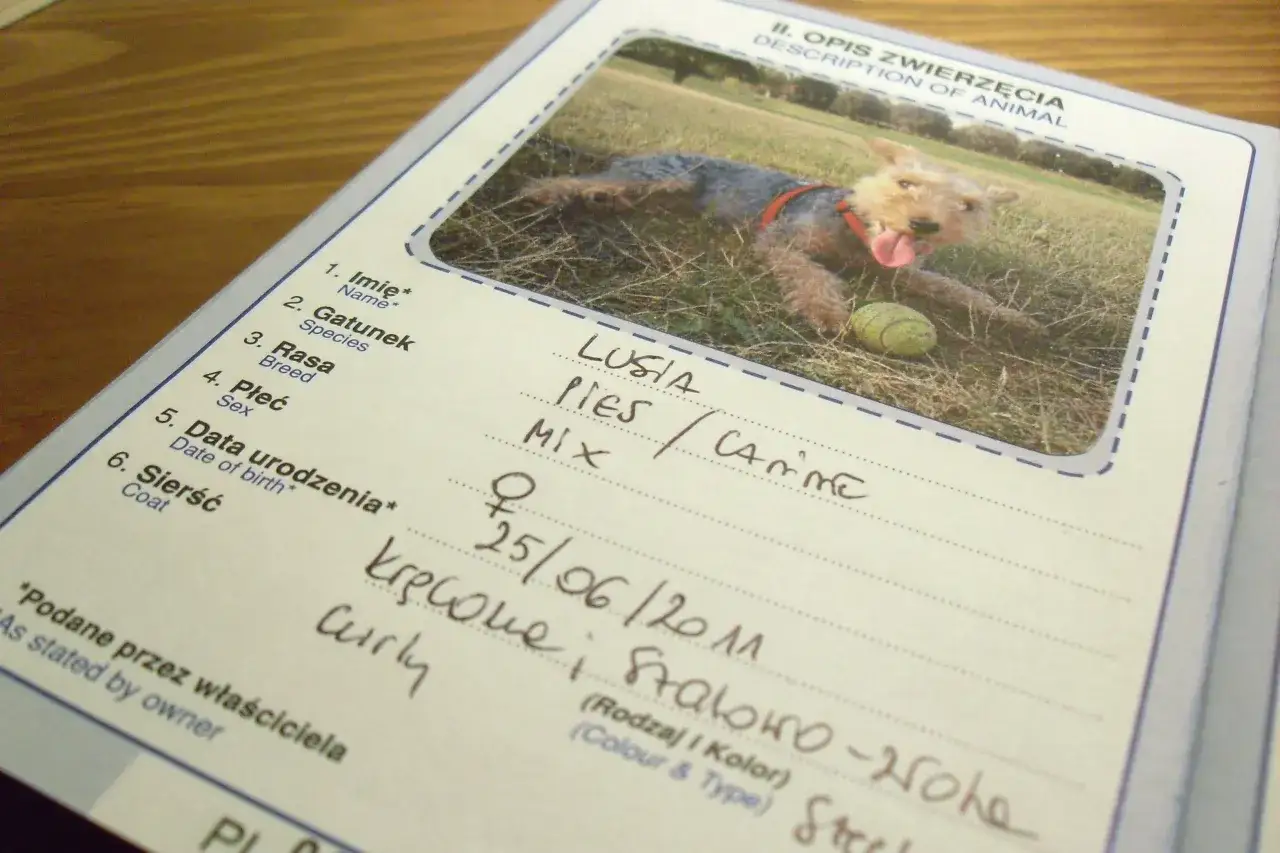 II. OPIS ZWIERZĘCIA
DESCRIPTION OF ANIMAL
1. Imię*
Name*
LUSIA
2. Gatunek
Species
PIES / CANINE
3. Rasa
Breed
MIX
4. Płeć
Sex
♀
5. Data urodzenia*
Date of birth*
25/06/2011
6. Sierść
Coat
kręcone; stalowo-złote
curly
(Rodzaj i Kolor)
(Colour & Type)
*Podane przez właściciela
As stated by owner
PL